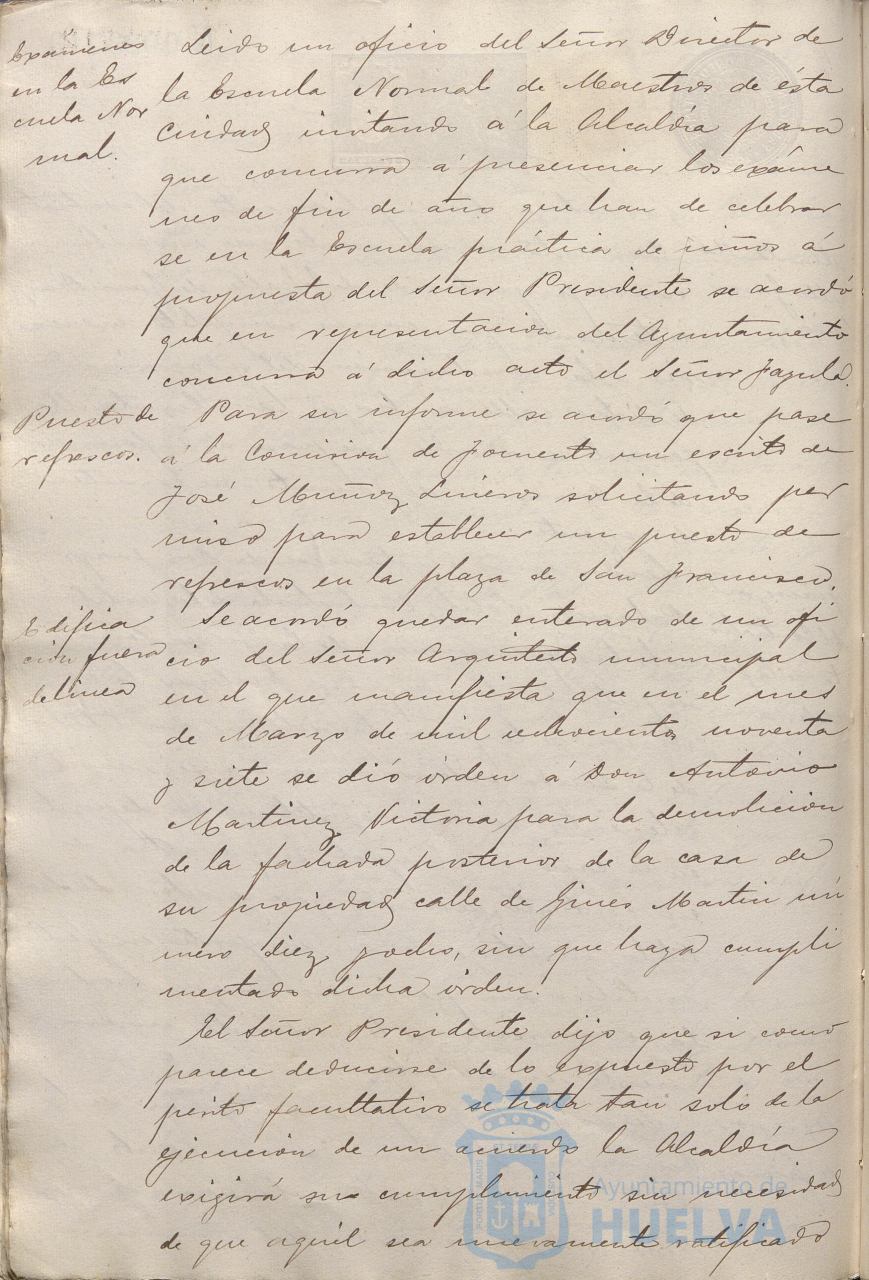 Exámenes
en la Es
cuela Nor
mal.
Leido un oficio del Señor Director de
la Escuela Normal de Maestros de ésta
Ciudad invitando á la Alcaldía para
que concurra á presenciar los exáme
nes de fin de año que han de celebrar
se en la Escuela práctica de niños á
propuesta del Señor Presidente se acordó
que en representacion del Ayuntamiento
concurra á dicho acto el Señor
Puesto de
refrescos.
Para su informe se acordó que pase
á la Comision de Fomento un escrito de
José Muñoz Lineros solicitando per
miso para establecer un puesto de
refrescos en la plaza de San Francisco.
Edifica
cion fuera
de linea
Se acordó quedar enterado de un ofi
cio del Señor Arquitecto municipal
en el que manifiesta que en el mes
de Marzo de mil ochocientos noventa
y siete se dió órden á Don Antonio
Martinez Victoria para la demolicion
de la fachada posterior de la casa de
su propiedad calle de Ginés Martin nú
mero diez y ocho, sin que haya cumpli
mentado dicha órden.
El Señor Presidente dijo que si como
parece deducirse de lo expuesto por el
perito facultativo se trata tan solo de la
ejecucion de un acuerdo la Alcaldía
exigirá su cumplimiento sin necesidad
de que aquél sea nuevamente ratificado
Ayuntamiento de
HUELVA